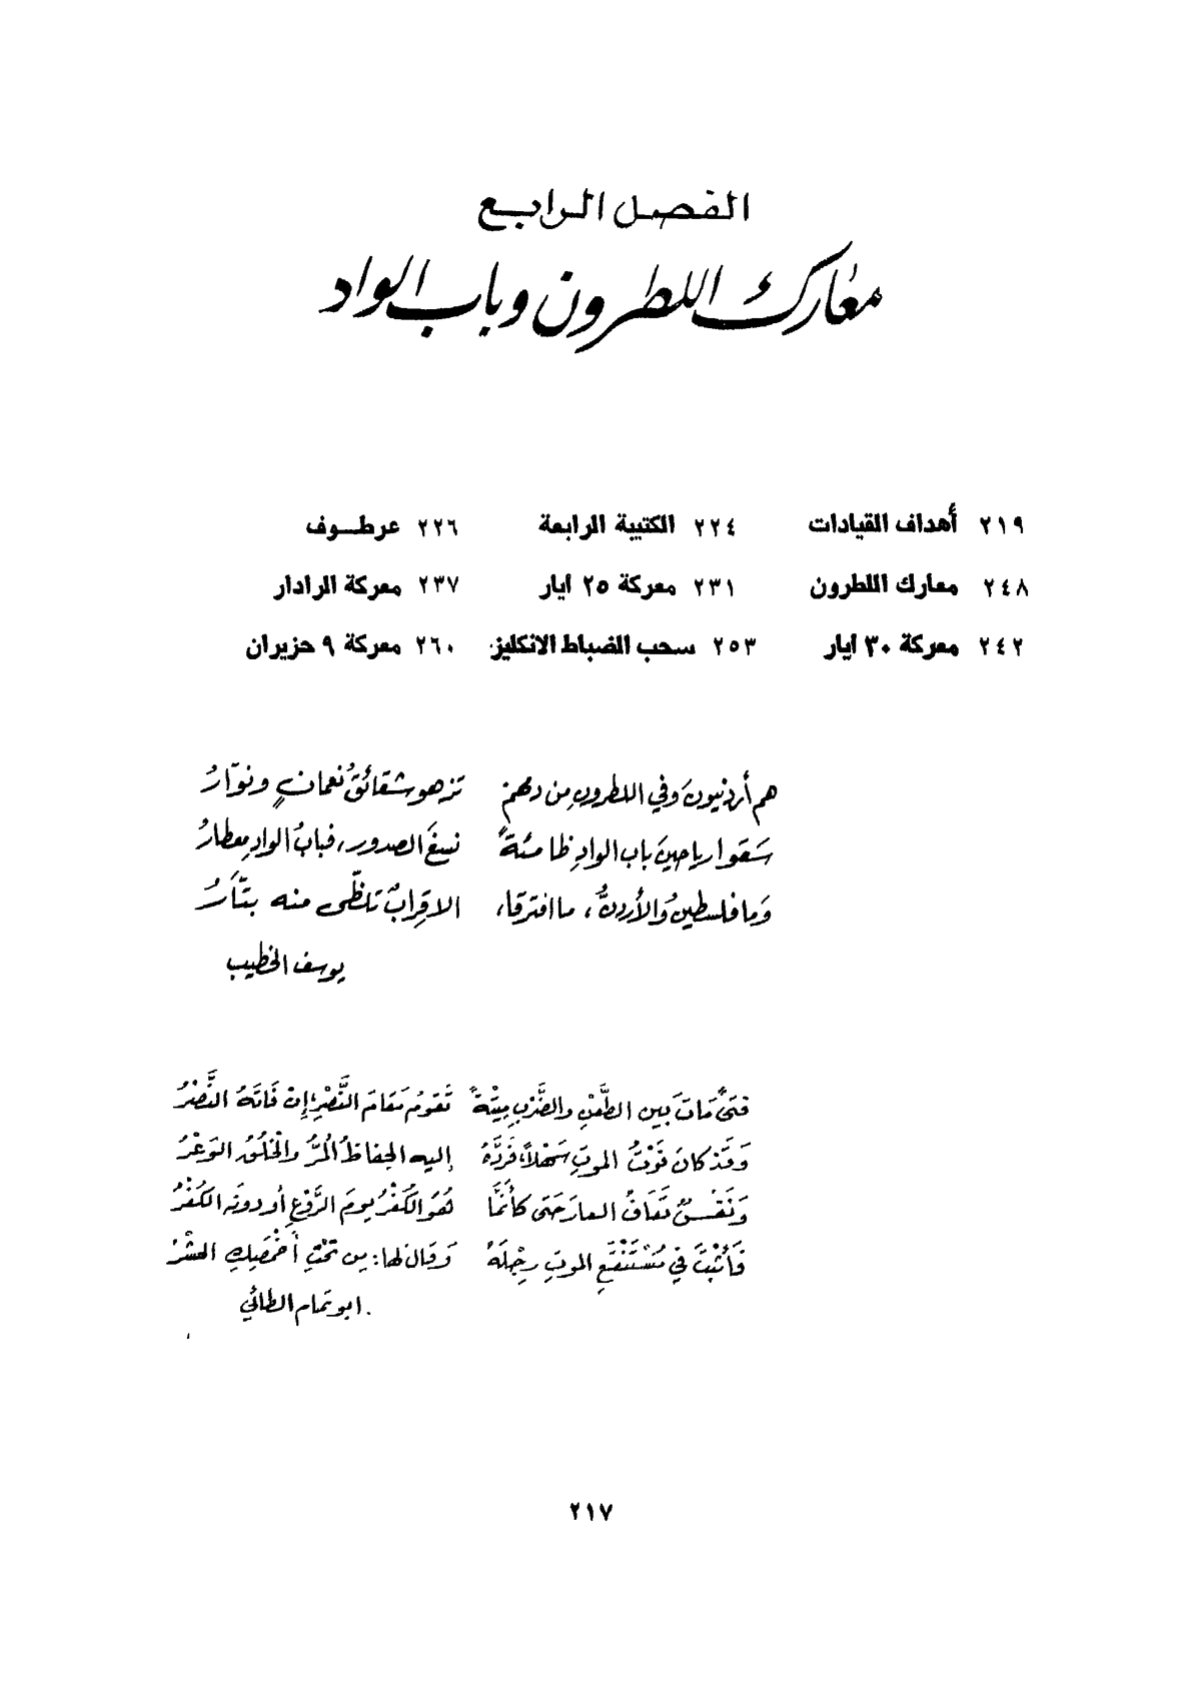 الفصل الرابع
معارك اللطرون وباب الواد
٢١٩ أهداف القيادات ٢٢٤ الكتيبة الرابعة ٢٢٦ عرطــوف
٢٤٨ معارك اللطرون ٢٣١ معركة ٢٥ ايار ٢٣٧ معركة الرادار
٢٤٢ معركة ٣٠ ايار ٢٥٣ سحب الضباط الانكليز ٢٦٠ معركة ٩ حزيران
هم أردنيونَ وفي اللطرونِ مِن دمهمْ تزهو شقائقُ نُعمانٍ ونوّارُ
سَقَوا رياحينَ بابِ الوادِ ظامئةً نسغَ الصدور، فبابُ الوادِ مِعطارُ
وَما فلسطينُ والأردنُّ، ما افترقا، الا قِرابٌ تلظّى منه بتّارُ
يوسف الخطيب
فتىً مَاتَ بين الطَّعْنِ والضَّرْبِ مِيتَةً تَقومُ مَقامَ النَّصْرِ إنْ فَاتَهُ النَّصْرُ
وَقَدْ كانَ فَوْتُ الموتِ سَهْلاً، فَرَدَّهُ إليه الحِفاظُ المُرُّ والْخُلُقُ الوَعْرُ
وَنَفْسٌ تَعَافُ العارَ حَتى كأنَّمَا هُوَ الكُفْرُ يومَ الرَّوْعِ أو دونَه الكُفْرُ
فَأَثْبَتَ في مُسْتَنْقَعِ الموتِ رِجْلَهُ وَقَالَ لها: مِن تَحْتِ أَخْمَصِكِ الحشْرُ
ابو تمام الطائي
٢١٧